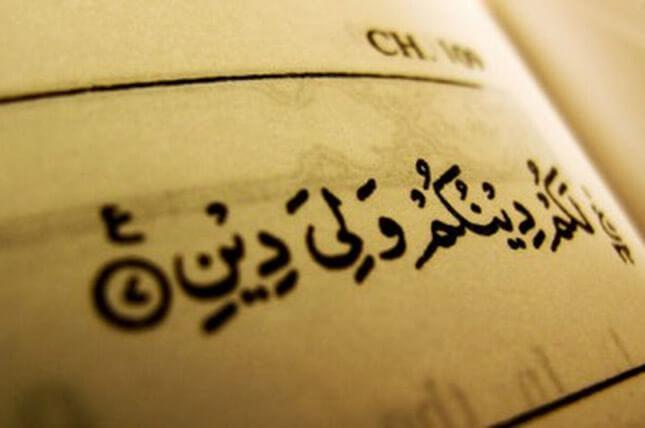 CH. 109
لَكُمْ دِيْنُكُمْ وَلِيَ دِيْنِ ۝٧ ع